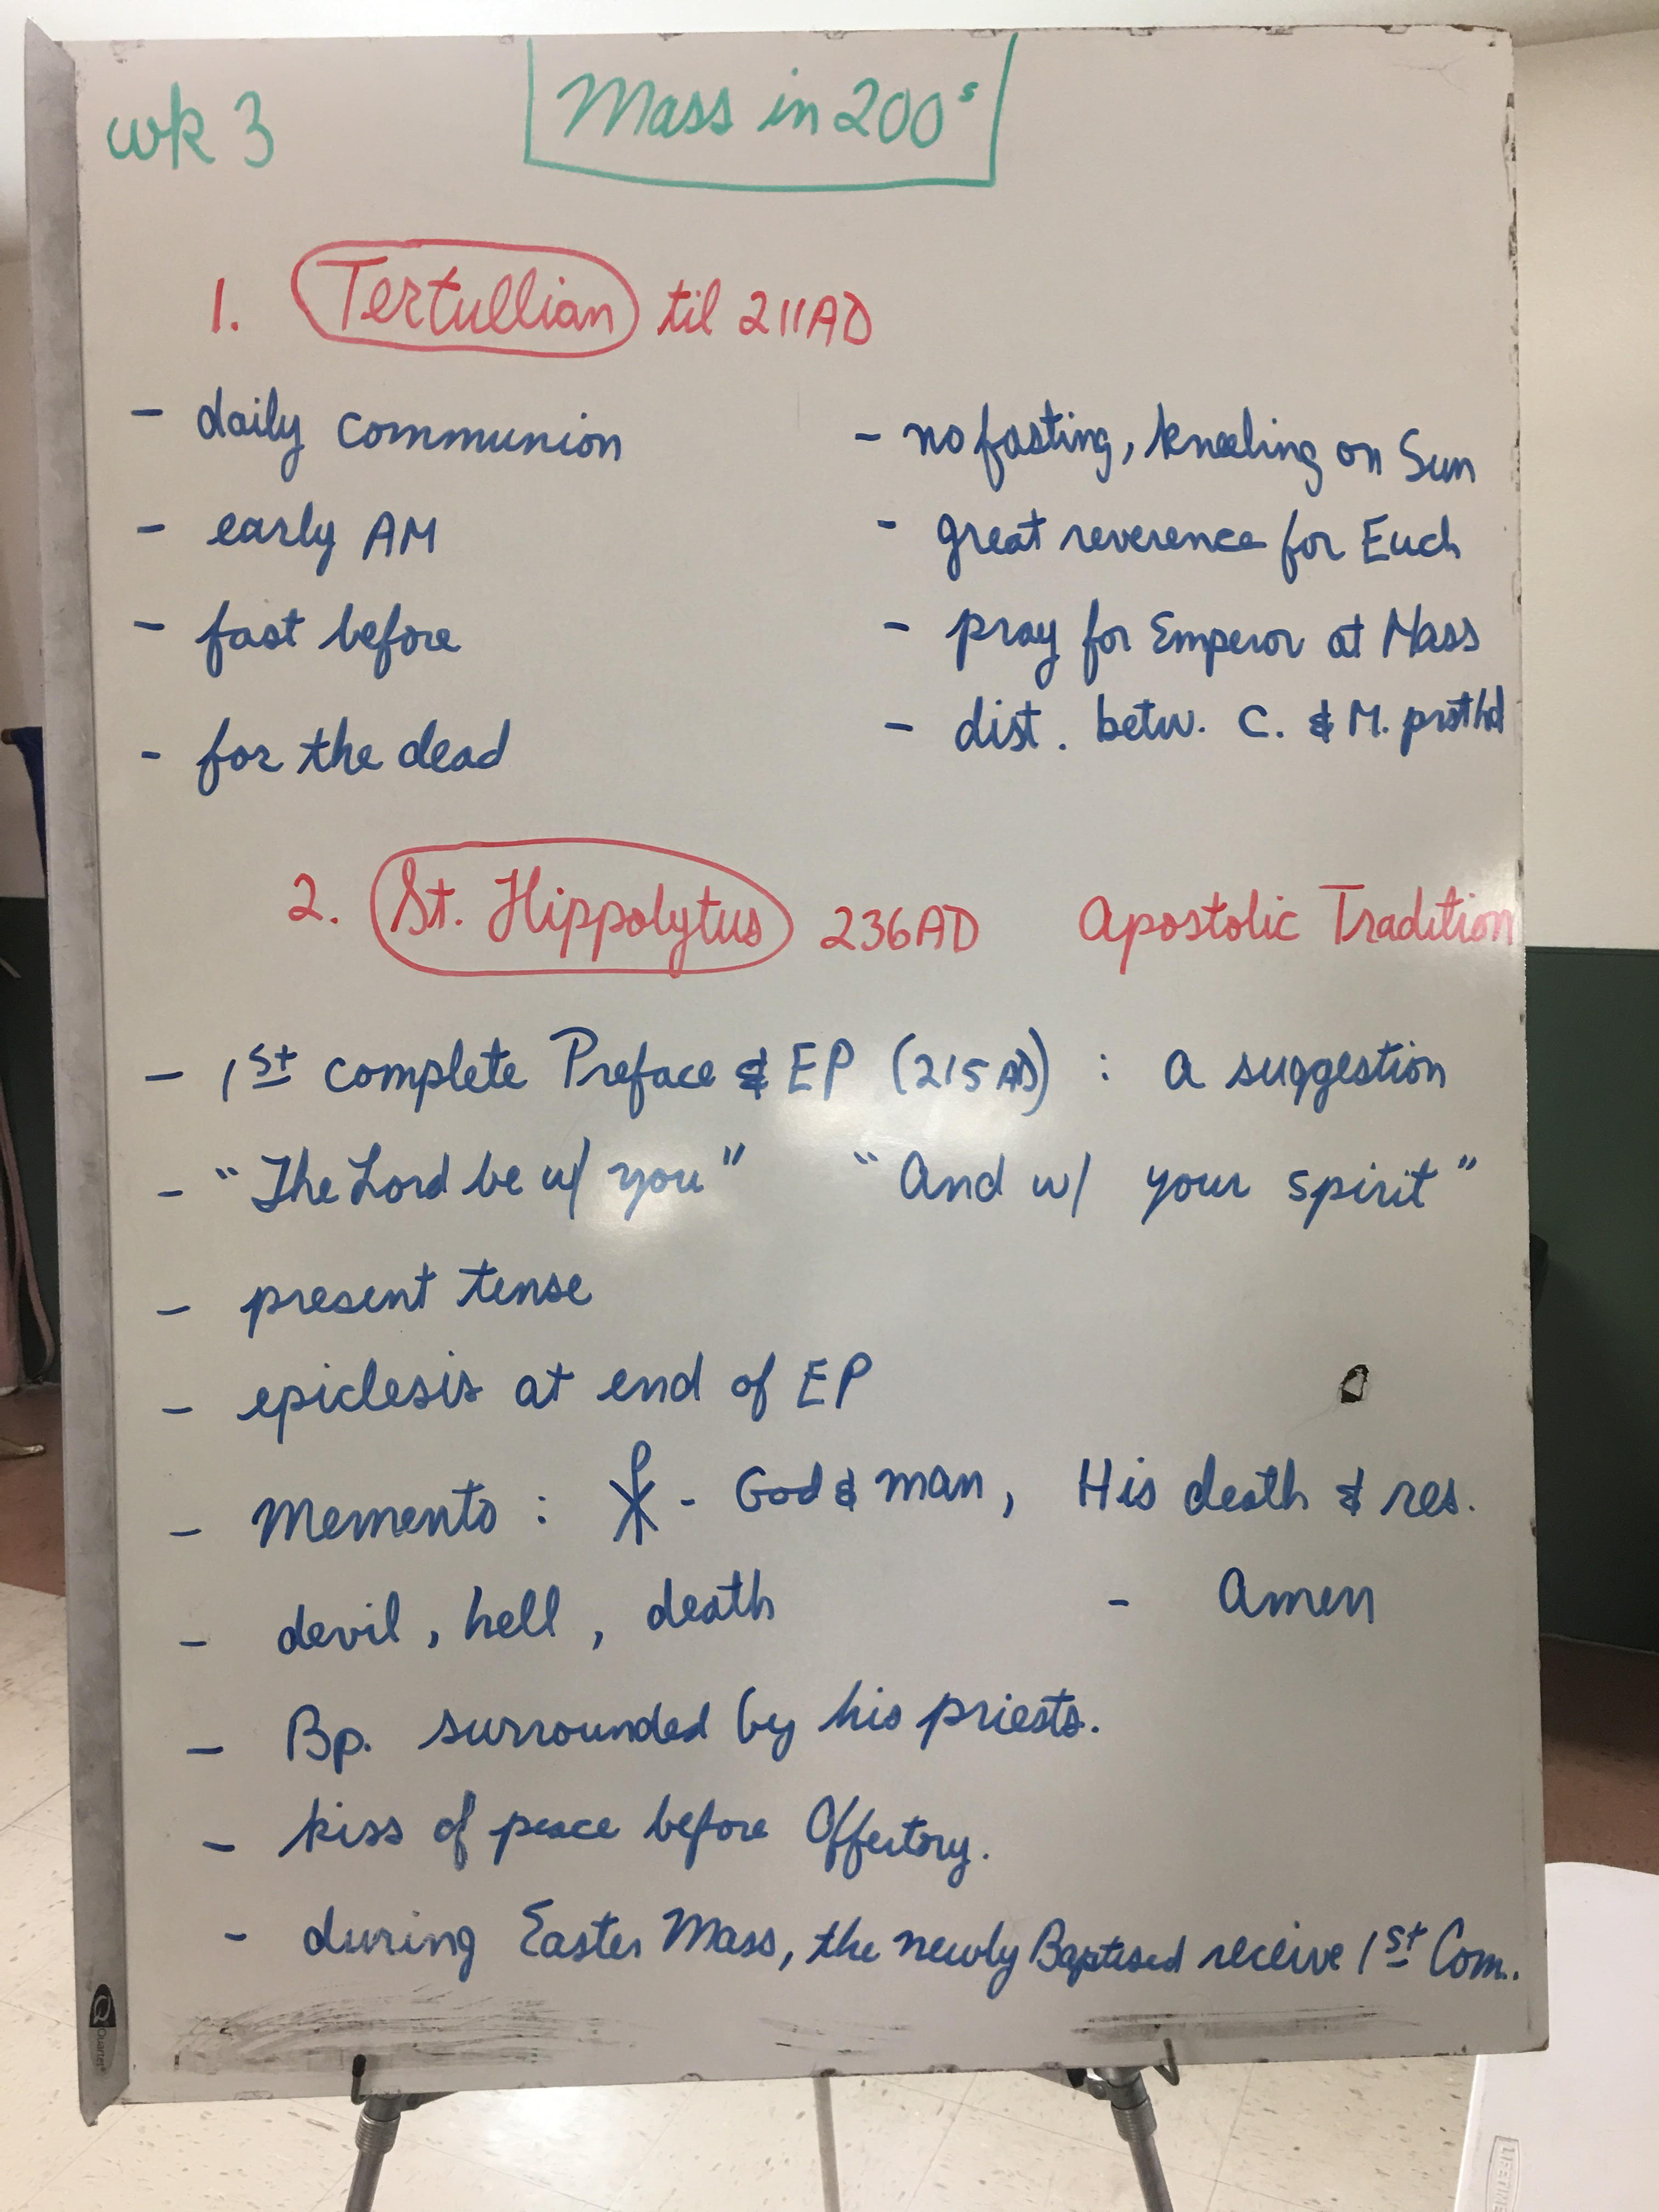 wk 3
Mass in 200s
1. Tertullian til 211AD
- daily communion
- early AM
- fast before
- for the dead
- no fasting, kneeling on Sun
- great reverence for Euch
- pray for Emperor at Mass
- dist. betw. C. & M. prsthd
2. St. Hippolytus 236AD Apostolic Tradition
- 1st complete Preface & EP (215 AD) : a suggestion
- "The Lord be w/ you" "And w/ your spirit"
- present tense
- epiclesis at end of EP
- Memento : ☧ - God & man, His death & res.
- devil, hell, death - Amen
- Bp. surrounded by his priests.
- kiss of peace before Offertory.
- during Easter Mass, the newly Baptised receive 1st Com.
Quartet
LIFETIME